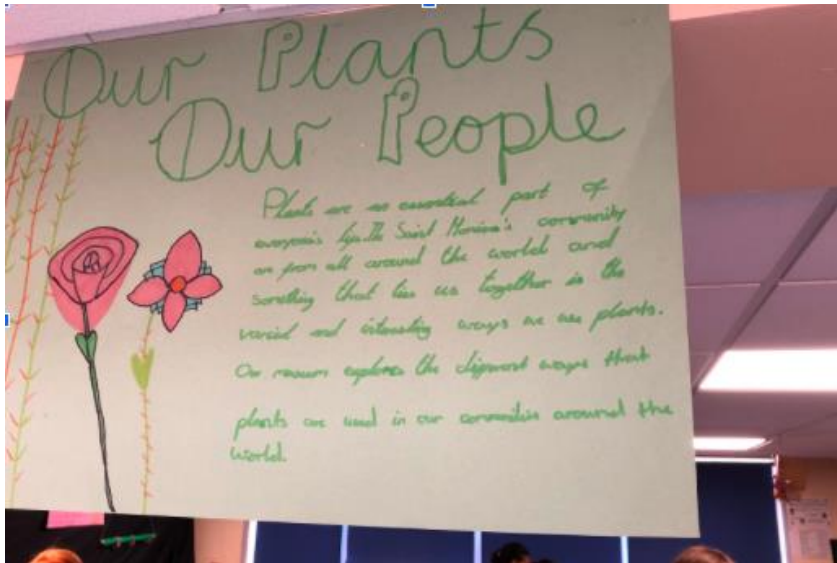 Our Plants
Our People
Plants are an essential part of
everyone's life. The Saint Monica's community
are from all around the world and
something that ties us together is the
varied and interesting ways we use plants.
Our museum explores the different ways that
plants are used in our communities around the
world.